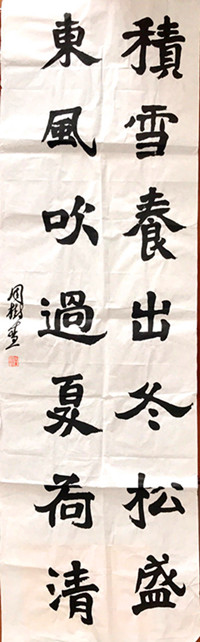 積雪養出冬松盛
東風吹過夏荷清